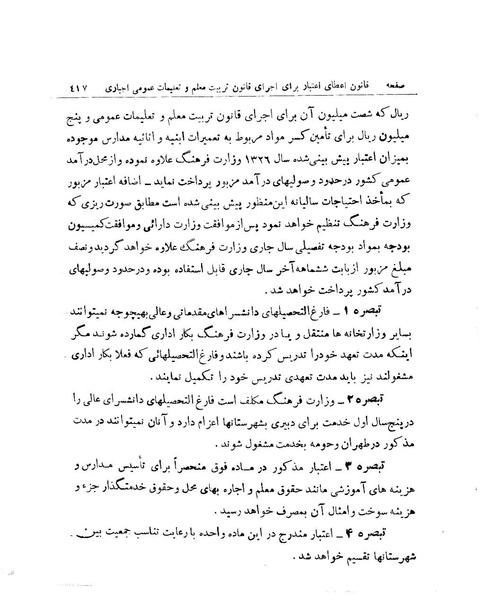 صفحه قانون اعطای اعتبار برای اجرای قانون تربیت معلم و تعلیمات عمومی اجباری ٤١٧
ریال که شصت میلیون آن برای اجرای قانون تربیت معلم و تعلیمات عمومی و پنج
میلیون ریال برای تأمین کسر مواد مربوط به تعمیرات ابنیه و اثاثیه مدارس موجوده
بمیزان اعتبار پیش بینی شده سال ۱۳۲٦ وزارت فرهنگ علاوه نموده و از محل درآمد
عمومی کشور در حدود وصولیهای درآمد مزبور پرداخت نماید ـ اضافه اعتبار مزبور
که بمأخذ احتیاجات سالیانه این منظور پیش بینی شده است مطابق صورت ریزی که
وزارت فرهنگ تنظیم خواهد نمود پس از موافقت وزارت دارائی و موافقت کمیسیون
بودجه بمواد بودجه تفصیلی سال جاری وزارت فرهنگ علاوه خواهد گردید و نصف
مبلغ مزبور از بابت ششماهه آخر سال جاری قابل استفاده بوده و در حدود وصولیهای
درآمد کشور پرداخت خواهد شد.
تبصره ۱ ـ فارغ التحصیلهای دانشسراهای مقدماتی و عالی بهیچوجه نمیتوانند
بسایر وزارتخانه ها منتقل و یا در وزارت فرهنگ بکار اداری گمارده شوند مگر
اینکه مدت تعهد خود را تدریس کرده باشند و فارغ التحصیلهائی که فعلا بکار اداری
مشغولند نیز باید مدت تعهدی تدریس خود را تکمیل نمایند.
تبصره ۲ ـ وزارت فرهنگ مکلف است فارغ التحصیلهای دانشسرای عالی را
در پنج سال اول خدمت برای دبیری بشهرستانها اعزام دارد و آنان نمیتوانند در مدت
مذکور در طهران و حومه بخدمت مشغول شوند.
تبصره ۳ ـ اعتبار مذکور در ماده فوق منحصراً برای تأسیس مدارس و
هزینه های آموزشی مانند حقوق معلم و اجاره بهای محل و حقوق خدمتگذار جزء و
هزینه سوخت و امثال آن بمصرف خواهد رسید.
تبصره ٤ ـ اعتبار مندرج در این ماده واحده با رعایت تناسب جمعیت بین
شهرستانها تقسیم خواهد شد.